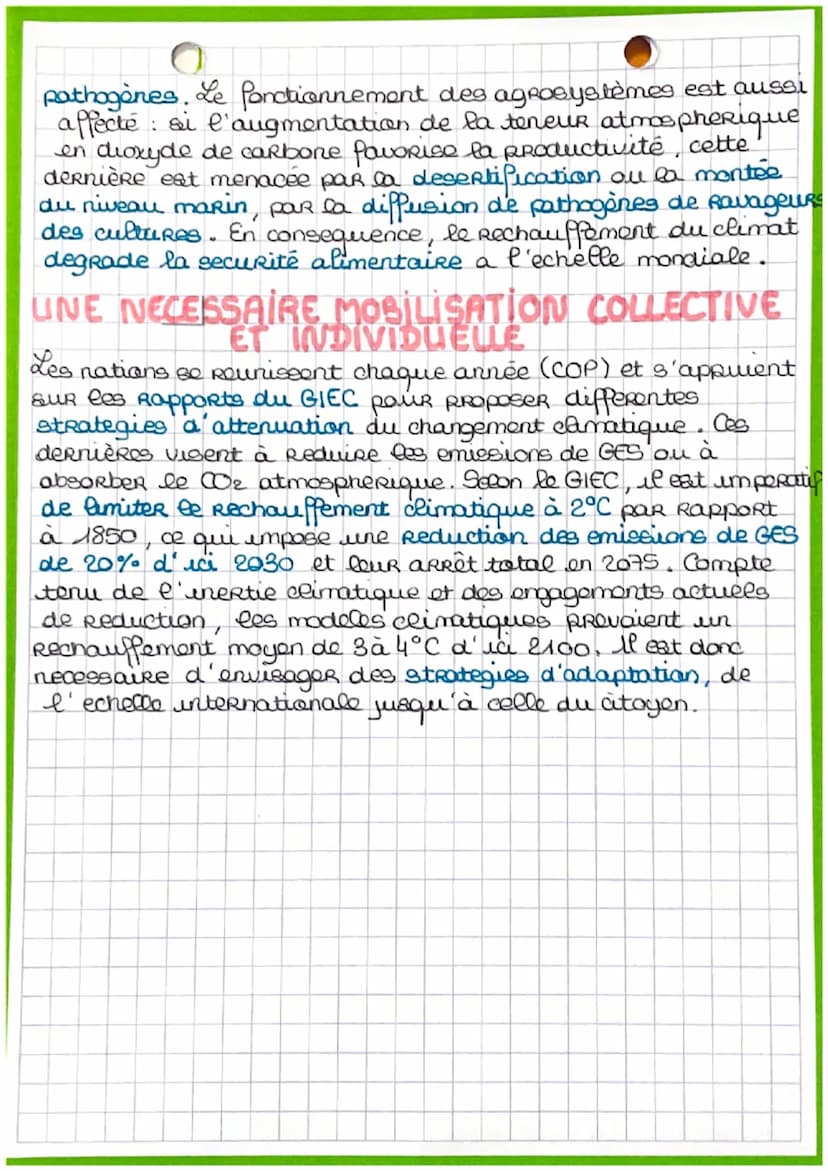 pathogènes. Le fonctionnement des agrosystèmes est aussi
affecté : si l'augmentation de la teneur atmospherique
en dioxyde de carbone favorise la productivité, cette
dernière est menacée par la desertification ou la montée
du niveau marin, par la diffusion de pathogènes de ravageurs
des cultures. En consequence, le rechauffement du climat
degrade la securité alimentaire a l'echelle mondiale.
UNE NECESSAIRE MOBILISATION COLLECTIVE
ET INDIVIDUELLE
Les nations se reunissent chaque année (COP) et s'appuient
sur les rapports du GIEC pour proposer differentes
strategies d'attenuation du changement climatique. Ces
dernières visent à reduire les emissions de GES ou à
absorber le CO2 atmospherique. Selon le GIEC, il est imperatif
de limiter le rechauffement climatique à 2°C par rapport
à 1850, ce qui impose une reduction des emissions de GES
de 20% d'ici 2030 et leur arrêt total en 2075. Compte
tenu de l'inertie climatique et des engagements actuels
de reduction, les modeles climatiques prevoient un
rechauffement moyen de 3 à 4°C d'ici 2100, il est donc
necessaire d'envisager des strategies d'adaptation, de
l'echelle internationale jusqu'à celle du citoyen.